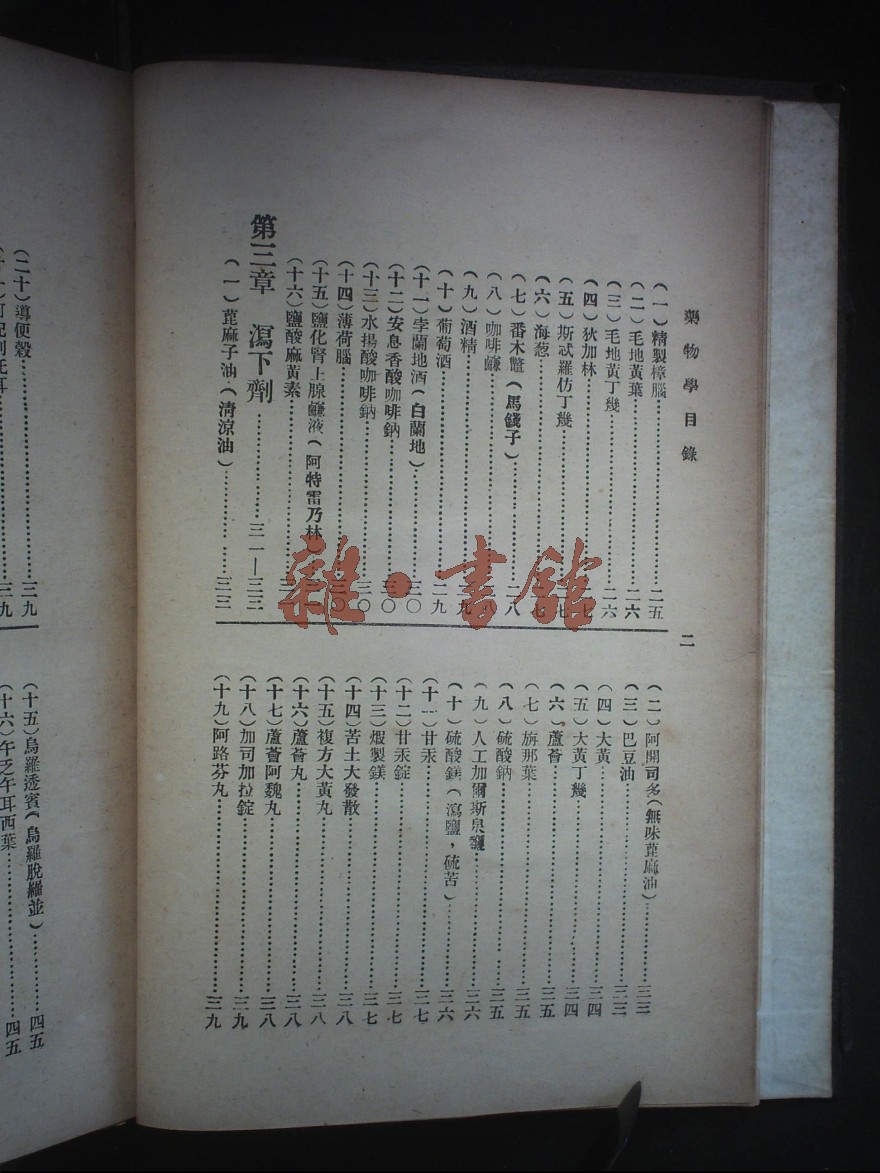 藥物學目錄
二
(一)精製樟腦…………二五
(二)毛地黃葉…………二六
(三)毛地黃丁幾…………二六
(四)狄加林…………二七
(五)斯忒羅仿丁幾…………二七
(六)海葱…………二七
(七)番木鼈(馬錢子)…………二八
(八)咖啡鹼…………
(九)酒精…………二九
(十)葡萄酒…………二九
(十一)孛蘭地酒(白蘭地)…………三〇
(十二)安息香酸咖啡鈉…………三〇
(十三)水揚酸咖啡鈉…………三〇
(十四)薄荷腦…………三〇
(十五)鹽化腎上腺鹼液(阿特雷乃林)…………
(十六)鹽酸麻黃素…………
第三章 瀉下劑…………三一—三三
(一)蓖麻子油(清涼油)…………三三
(二)阿開司多(無味蓖麻油)…………三三
(三)巴豆油…………三三
(四)大黃…………三四
(五)大黃丁幾…………三四
(六)蘆薈…………三五
(七)旃那葉…………三五
(八)硫酸鈉…………三五
(九)人工加爾斯泉鹽…………三六
(十)硫酸鎂(瀉鹽，硫苦)…………三六
(十一)甘汞…………三七
(十二)甘汞錠…………三七
(十三)煆製鎂…………三七
(十四)苦土大發散…………三八
(十五)複方大黃丸…………三八
(十六)蘆薈丸…………三八
(十七)蘆薈阿魏丸…………三八
(十八)加司加拉錠…………三九
(十九)阿路芬丸…………三九
(二十)導便穀…………三九
三九
(十五)烏羅透賓(烏羅脫羅並)…………四五
(十六)午乏午耳西葉…………四五
雜·書館